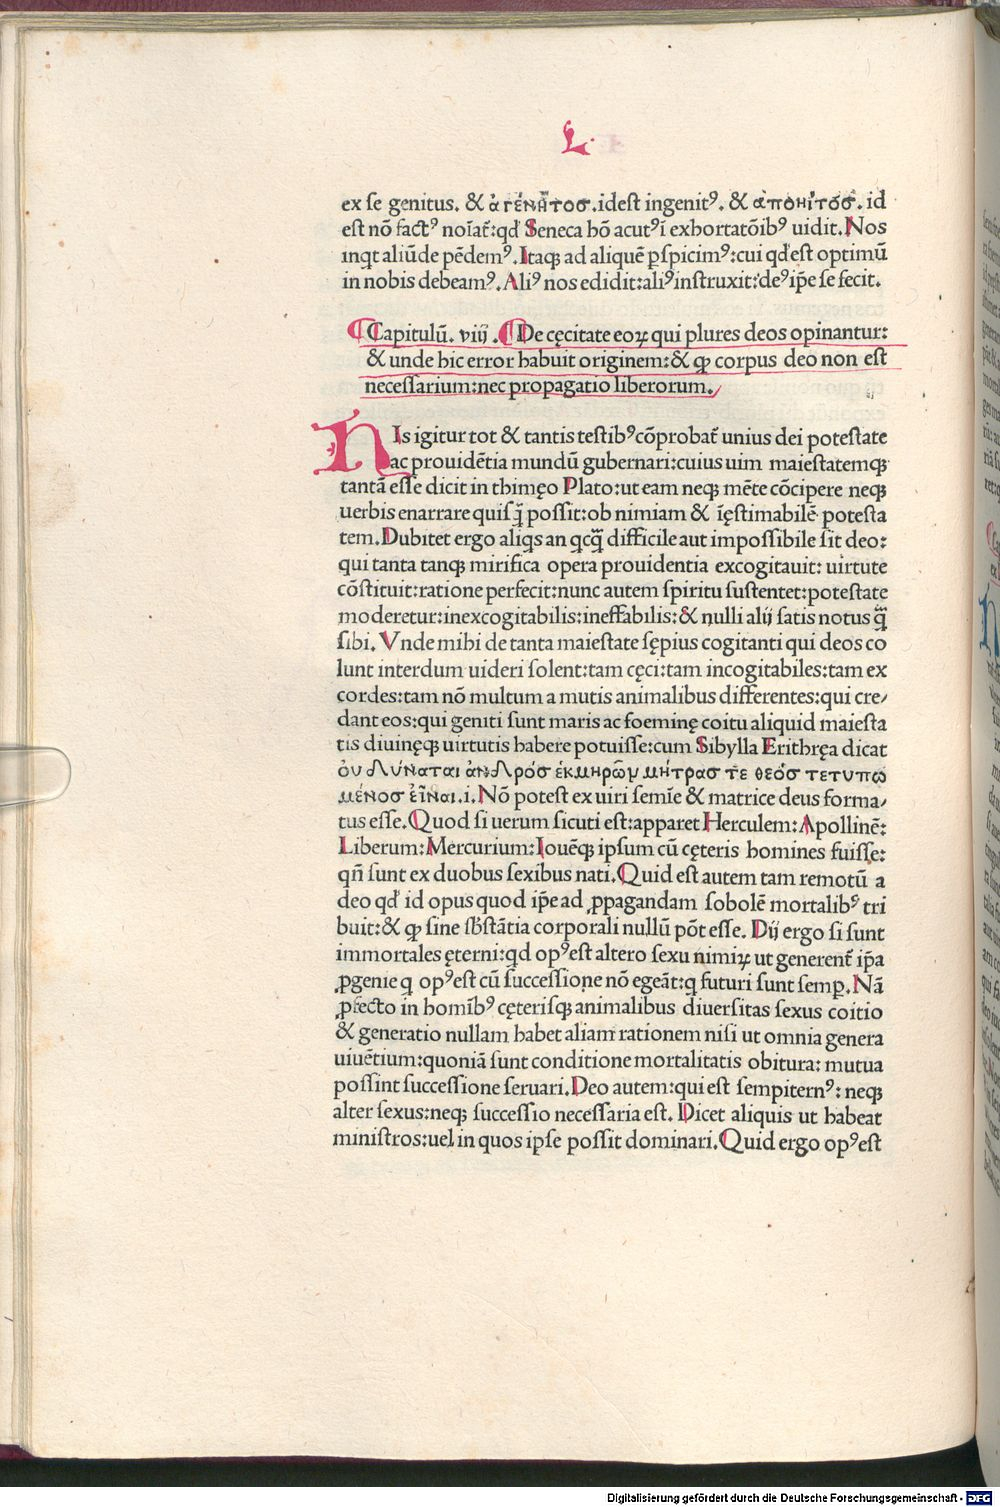 L.
ex se genitus. & ἀγένητοσ. idest ingenitꝰ. & ἀποίητόσ. id
est nō factꝰ noīat̄: qđ Seneca hō acutꝰ ī exhortatōibꝰ uidit. Nos
inqt aliūde pēdemꝰ. Itaqꝫ ad aliquē ꝑspicimꝰ: cui qđ est optimū
in nobis debeamꝰ. Aliꝰ nos edidit: aliꝰ instruxit: deꝰ ip̄e se fecit.
Capitulū. viij. De cęcitate eoꝝ qui plures deos opinantur:
& unde hic error habuit originem: & ꝙ corpus deo non est
necessarium: nec propagatio liberorum.
HIs igitur tot & tantis testibꝰ cōprobat̄ unius dei potestate
ac prouidētia mundū gubernari: cuius uim maiestatemqꝫ
tantā esse dicit in thimęo Plato: ut eam neqꝫ mēte cōcipere neqꝫ
uerbis enarrare quisq̄ possit: ob nimiam & īęstimabilē potesta
tem. Dubitet ergo aliqs an qcq̄ difficile aut impossibile sit deo:
qui tanta tanqꝫ mirifica opera prouidentia excogitauit: uirtute
cōstituit: ratione perfecit: nunc autem spiritu sustentet: potestate
moderetur: inexcogitabilis: ineffabilis: & nulli alij satis notus q̄
sibi. Vnde mihi de tanta maiestate sępius cogitanti qui deos co
lunt interdum uideri solent: tam cęci: tam incogitabiles: tam ex
cordes: tam nō multum a mutis animalibus differentes: qui cre/
dant eos: qui geniti sunt maris ac foeminę coitu aliquid maiesta
tis diuinęqꝫ uirtutis habere potuisse: cum Sibylla Erithręa dicat
ὀυ δύναται ἀνδρόσ ἐκ μηρῶν μήτρασ τε θεόσ τετυπω
μένοσ εἶναι. i. Nō potest ex uiri semīe & matrice deus forma/
tus esse. Quod si uerum sicuti est: apparet Herculem: Apollinē:
Liberum: Mercurium: Iouēqꝫ ipsum cū cęteris homines fuisse:
qn̄ sunt ex duobus sexibus nati. Quid est autem tam remotū a
deo qđ id opus quod ip̄e ad ꝓpagandam sobolē mortalibꝰ tri
buit: & ꝙ sine sb̄stātia corporali nullū pōt esse. Dij ergo si sunt
immortales ęterni: qd opꝰ est altero sexu nimiꝝ ut generent̄ ip̄a
ꝓgenie q opꝰ est cū successione nō egeāt: q futuri sunt semꝑ. Nā
ꝓfecto in homībꝰ cęterisqꝫ animalibus diuersitas sexus coitio
& generatio nullam habet aliam rationem nisi ut omnia genera
uiuētium: quoniā sunt conditione mortalitatis obitura: mutua
possint successione seruari. Deo autem: qui est sempiternꝰ: neqꝫ
alter sexus: neqꝫ successio necessaria est. Dicet aliquis ut habeat
ministros: uel in quos ipse possit dominari. Quid ergo opꝰ est
Digitalisierung gefördert durch die Deutsche Forschungsgemeinschaft - DFG